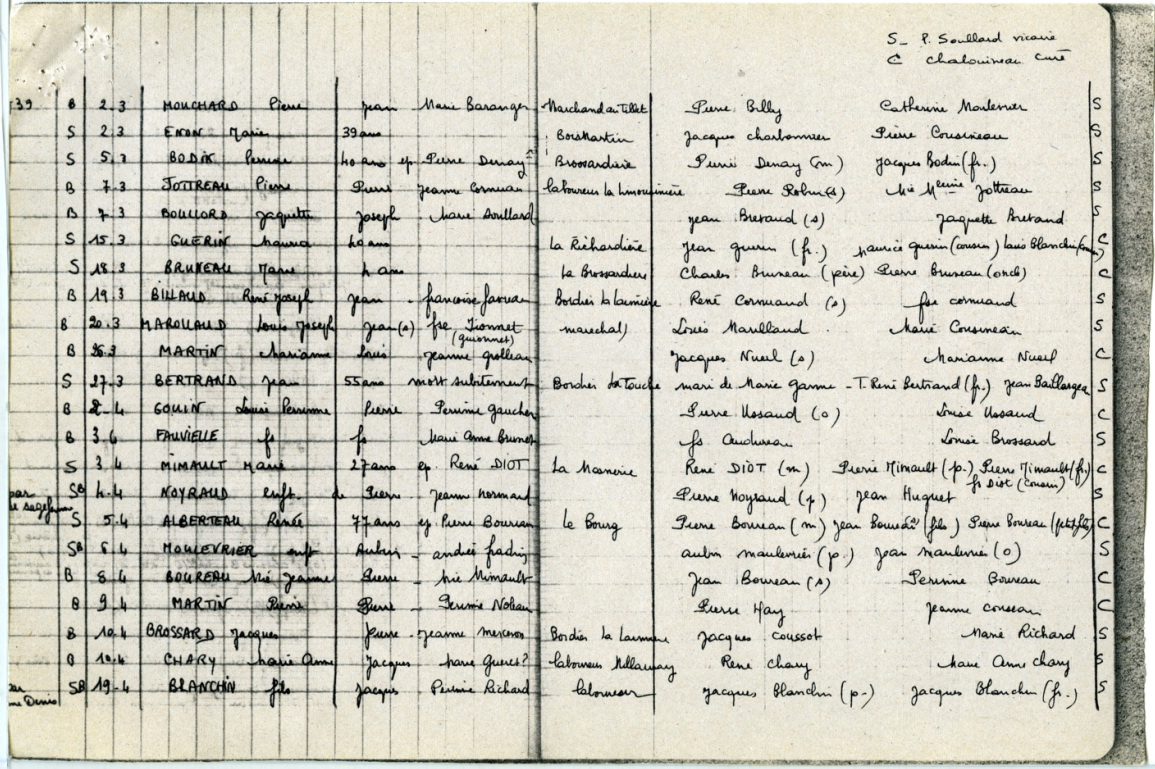 S_ P. Soullard vicaire
C Chalouineau curé
39 B 2.3 MOUCHARD Pierre Jean Marie Baranger Marchand au Tillet Pierre Billy Catherine Maulevrier S
S 2.3 ENON Marie 39 ans Boismartin Jacques charbonnier Pierre Cousineau S
S 5.3 BODIN Perrine 40 ans ep Pierre Denay Brossardière Pierre Denay (m) Jacques Bodin (fr.) S
B 7.3 JOTTREAU Pierre Pierre Jeanne Cornuau laboureur la Limousinière Pierre Robin (s) Mie Jottreau S
B 7.3 BOULLORD Jaquette Joseph Marie Soullard Jean Bretaud (s) Jaquette Bretaud S
S 15.3 GUERIN Maurice 40 ans La Richardière Jean guerin (fr.) Maurice guerin (cousin) Louis Blanchin C
S 18.3 BRUNEAU Marie 4 ans La Brossardiere Charles Bruneau (père) Pierre Bruneau (oncle) C
B 19.3 BILLAUD René Joseph Jean - françoise Bordier la René Cornuaud (s) fse cornuaud S
B 20.3 MAROLLAUD Louis Joseph Jean (s) fse Tionnet (guionnet) marechal) Louis Marillaud Marie Cousineau S
B 26.3 MARTIN Marianne Louis Jeanne grolleau Jacques Nueil (s) Marianne Nueil C
S 27.3 BERTRAND Jean 55 ans mort subitement Bordier La Touche mari de Marie - T. René Bertrand (fr.) Jean Baillarger S
B 2.4 GOUIN Louise Perrinne Pierre Perrine gaucher Pierre Ussaud (o) Louise Ussaud C
B 3.4 FAUVIELLE fs fs Marie Anne Brunet fs Audureau Louise Brossard S
S 3.4 MIMAULT Marie 27 ans ep. René DIOT La René DIOT (m) Pierre Mimault (p.) Pierre Mimault (fr.) fs Diot (cousin) C
par SB 4.4 NOYRAUD enft. de Pierre - Jeanne Normand Pierre Noyraud (p) Jean Huguet S
S 5.4 ALBERTEAU Renée 77 ans ep Pierre Boureau Le Bourg Pierre Boureau (m) Jean Boureau (fils) Pierre Boureau (petit fils) C
SB 6.4 MOULEVRIER enft Aubin - andrée aubin maulevrier (p.) Jean maulevrier (o) S
B 8.4 BOUREAU Mie Jeanne Pierre - Mie Mimault Jean Boureau (s) Perrinne Boureau C
B 9.4 MARTIN Pierre Pierre - Perrine Noleau Pierre Hay Jeanne C
B 10.4 BROSSARD Jacques Pierre - Jeanne merceron Bordier La Jacques coussot Marie Richard S
B 10.4 CHARY Marie Anne Jacques Marie Gueret? laboureur René Chary Marie Anne chary S
SB 19.4 BLANCHIN fils Jacques Perrine Richard laboureur Jacques Blanchin (p.) Jacques Blanchin (fr.) S
Denis